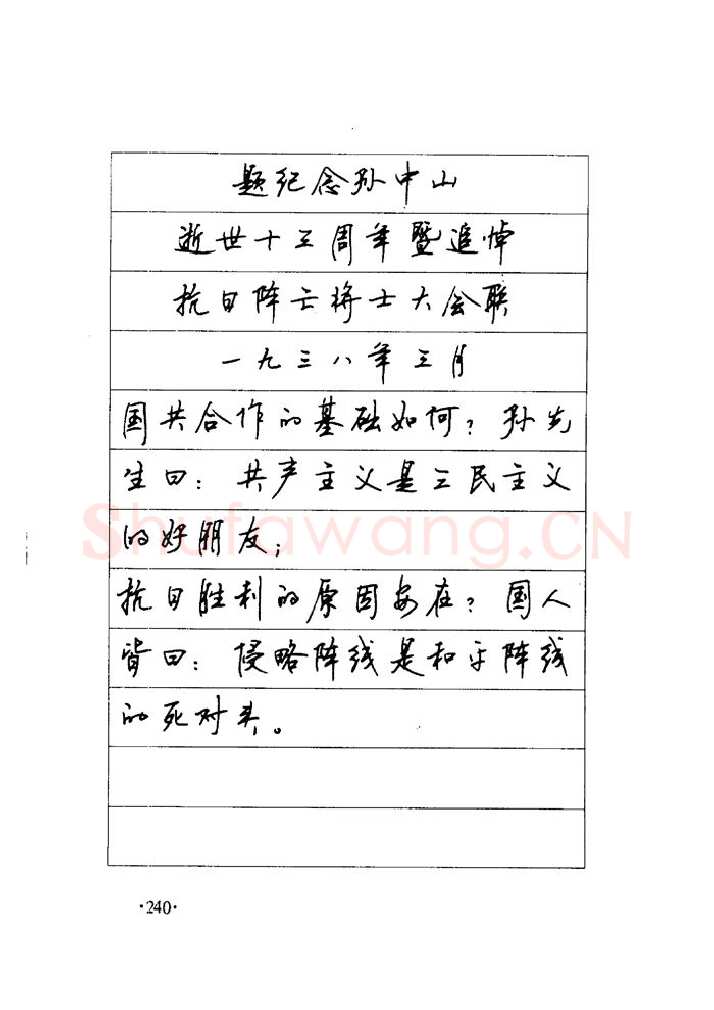 题纪念孙中山
逝世十三周年暨追悼
抗日阵亡将士大会联
一九三八年三月
国共合作的基础如何？孙先
生曰：共产主义是三民主义
的好朋友；
抗日胜利的原因安在？国人
皆曰：侵略阵线是和平阵线
的死对头。
Shufawang.CN
·240·